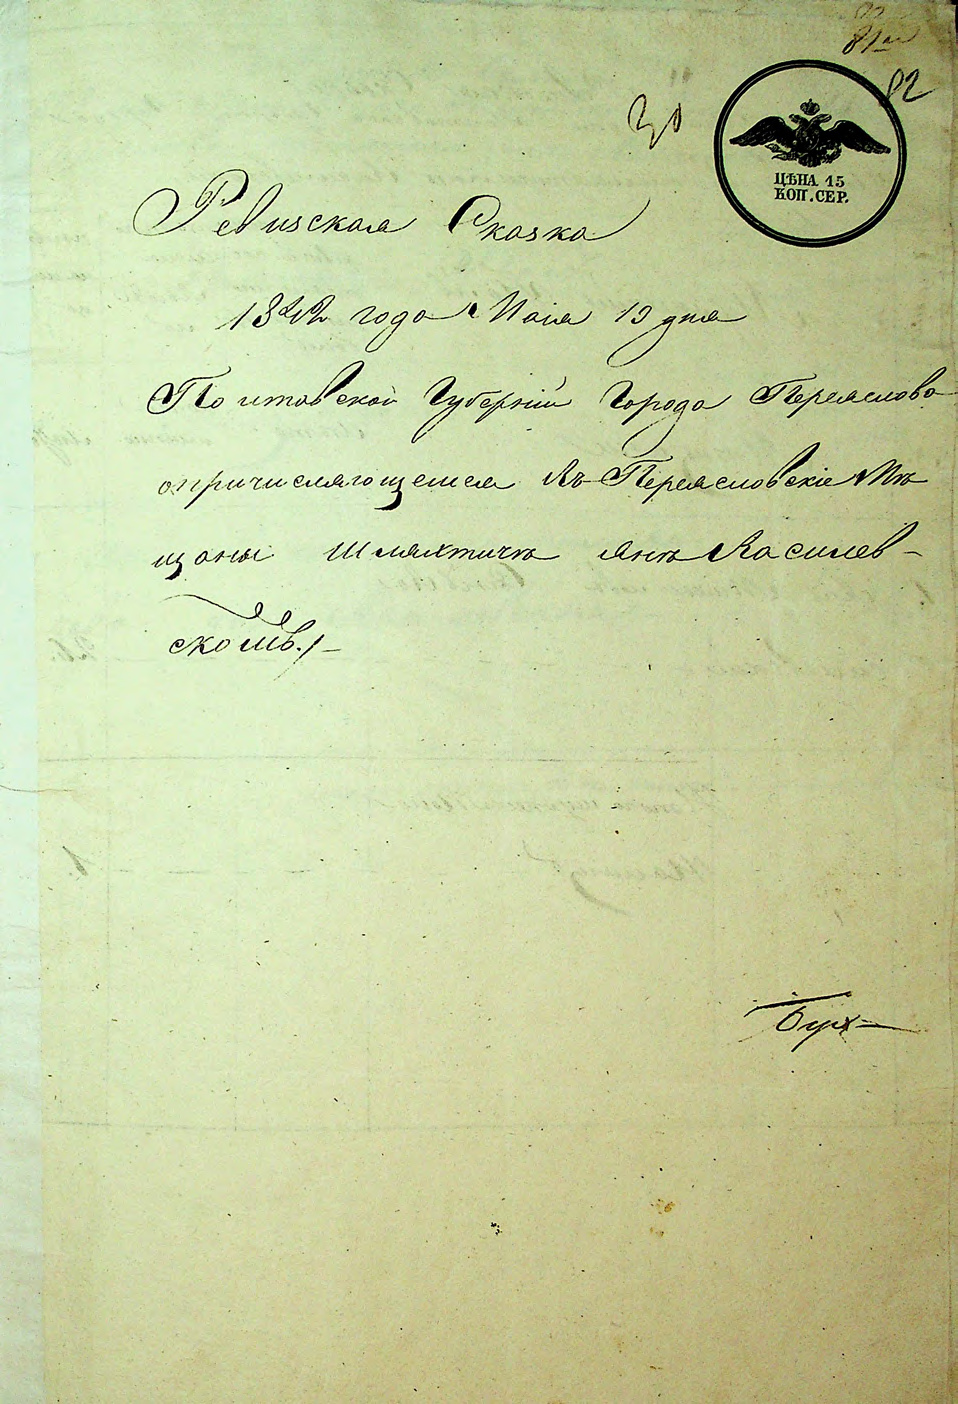 82
30
ЦѢНА 15
КОП. СЕР.
Ревизская Сказка
1842 года Маія 19 дня
Полтавской Губерніи Города Переяслова
опричисляющемся Въ Переясловскіе Мѣ
щаны Шляхтичѣ Янѣ Василев-
скомъ.